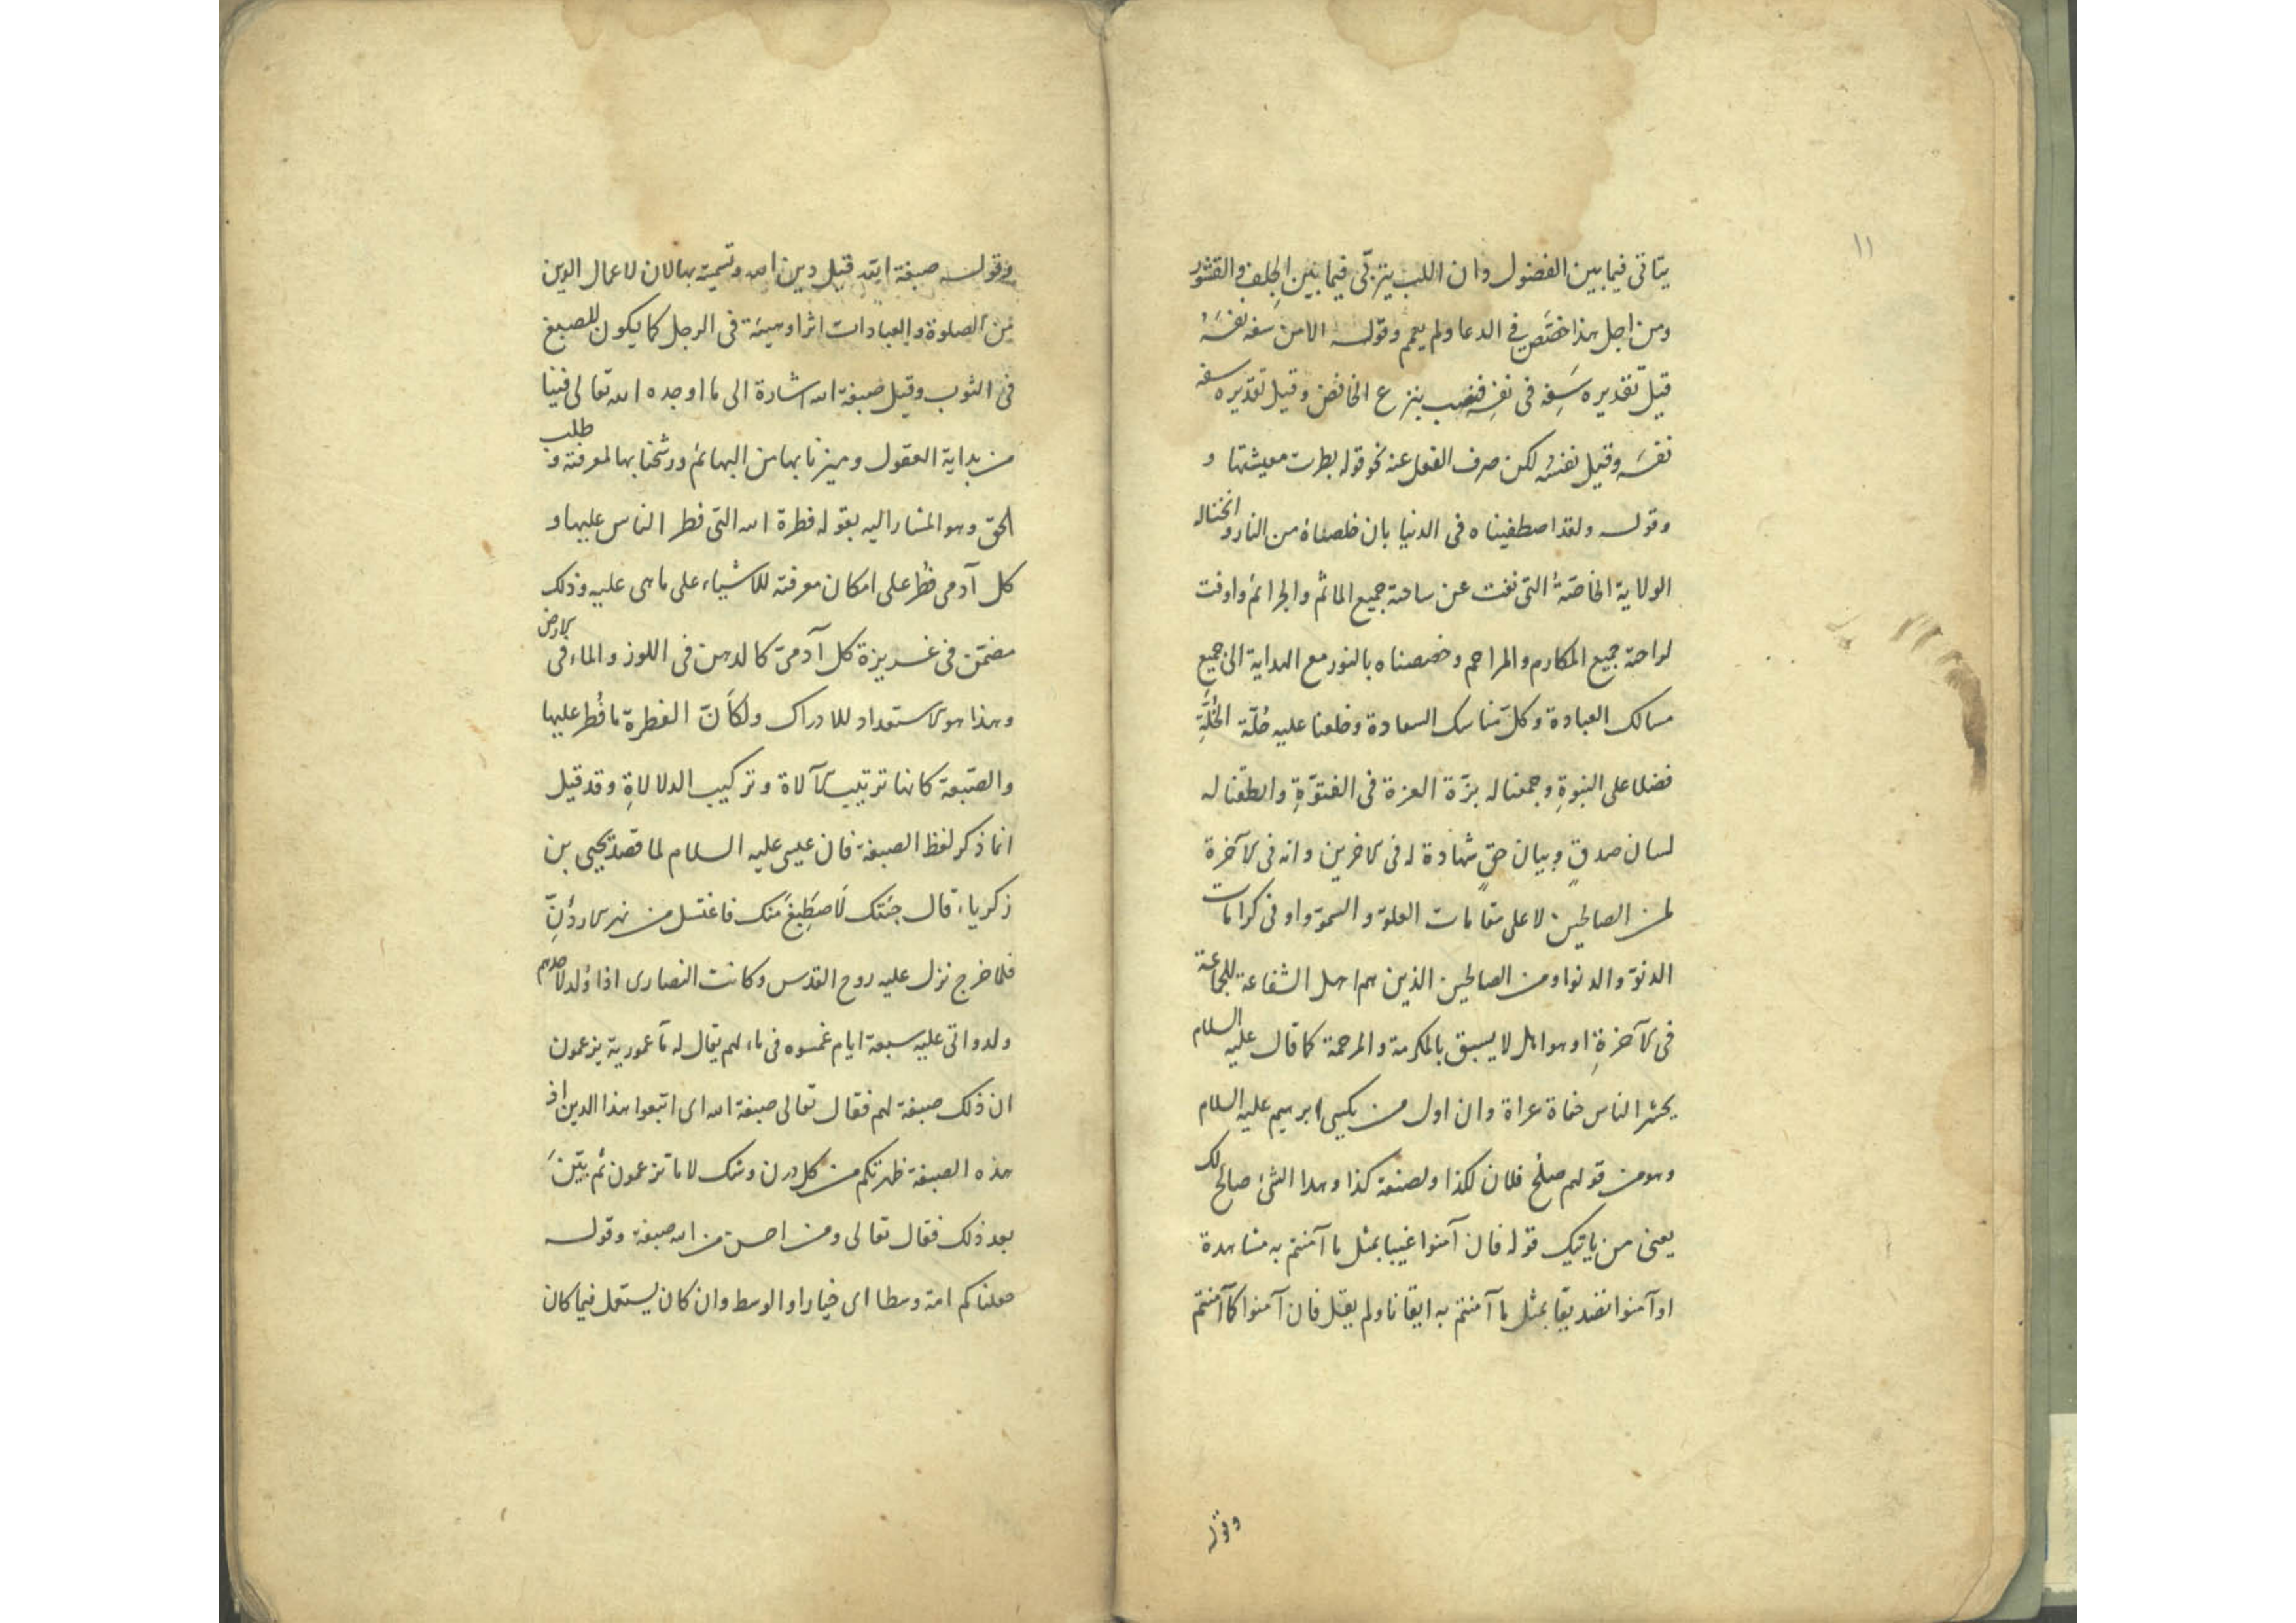 ١١
يتاتى فيما بين الفضول وان اللب يتربى فيما بين الجلف والقشور
ومن اجل هذا خصّص فى الدعا ولم يعمم وقوله الا من سفه نفسَهُ
قيل تقديره سَفِه فى نفسِه فنصب بنزع الخافض وقيل تقديره سفه
نفسَه وقيل نفسُه لكن صرف الفعل عنه نحو قوله بطرت معيشتها و
وقوله ولقد اصطفيناه فى الدنيا بان خلصناه من النار و
الولاية الخاصّة التى نفت عن ساحته جميع المآثم والجرائم واوفت
لراحته جميع المكارم والمراحم وخصصناه بالنور مع الهداية الى جميع
مسالك العبادة وكل مناسك السعادة وخلعنا عليه حُلّة الخُلَّةِ
فضلا على النبوةِ وجمعنا له بزّة العزة فى الفتوّةِ وانطقنا له
لسان صدقٍ وبيان حقٍ شهادة له فى الاخرين وانه فى الآخرة
لمن الصالحين لاعلى مقامات العلوّ والسموّ واوفى كرامات
الدنوّ والدنوا ومن الصالحين الذين هم اهل الشفاعة للجماعة
فى الآخرةِ او هو اهل لا يسبق بالمكرمة والمرحمة كما قال عليه السلام
يحشر الناس حفاة عراة وان اول من يكسى ابرهيم عليه السلام
وهو من قولهم صلُح فلان لكذا ولصنعة كذا وهذا الشئ صالح لك
يعنى من ياتيك قوله فان آمنوا غيبا بمثل ما آمنتم به مشاهدة
او آمنوا تصديقا بمثل ما آمنتم به ايقانا ولم يقل فان آمنوا كما آمنتم
وقوله
وقوله صبغة الله قيل دين الله وتسميته بها لان لاعمال الدين
من الصلوة والعبادات اثرا وهيئة فى الرجل كما يكون للصبغ
فى الثوب وقيل صبغة الله اشارة الى ما اوجده الله تعالى فينا
من بداية العقول وميزنا بها من البهائم ورشحنا بها لمعرفته و طلب
الحق وهو المشار اليه بقوله فطرة الله التى فطر الناس عليها و
كل آدمى فُطر على امكان معرفته للاشياء على ما هى عليه وذلك
مضمّن فى غريزة كل آدمىّ كالدهن فى اللوز والماء فى الارض
وهذا هو الاستعداد للادراك ولكأنّ الفطرة ما فُطر عليها
والصّبغة كانها ترتيب الآلاة وتركيب الدلالاةِ وقد قيل
انما ذكر لفظ الصبغة فان عيسى عليه السلام لما قصد يحيى بن
زكرياء قال جئتك لَاصطَبِغَ منك فاغتسل من نهر الاردُنِّ
فلما خرج نزل عليه روح القدس وكانت النصارى اذا وُلد لاحدهم
ولد واتى عليه سبعة ايام غمسوه فى ماء لهم يقال له ما عمورية يزعمون
ان ذلك صبغة لهم فقال تعالى صبغة الله اى اتبعوا هذا الدين اذ
هذه الصبغة طهرتكم من كل درن وشك لا ما تزعمون ثم بيّنَ
بعد ذلك فقال تعالى ومن احسن من الله صبغة وقوله
جعلناكم امة وسطا اى خيارا والوسط وان كان يستعمل فيما كان